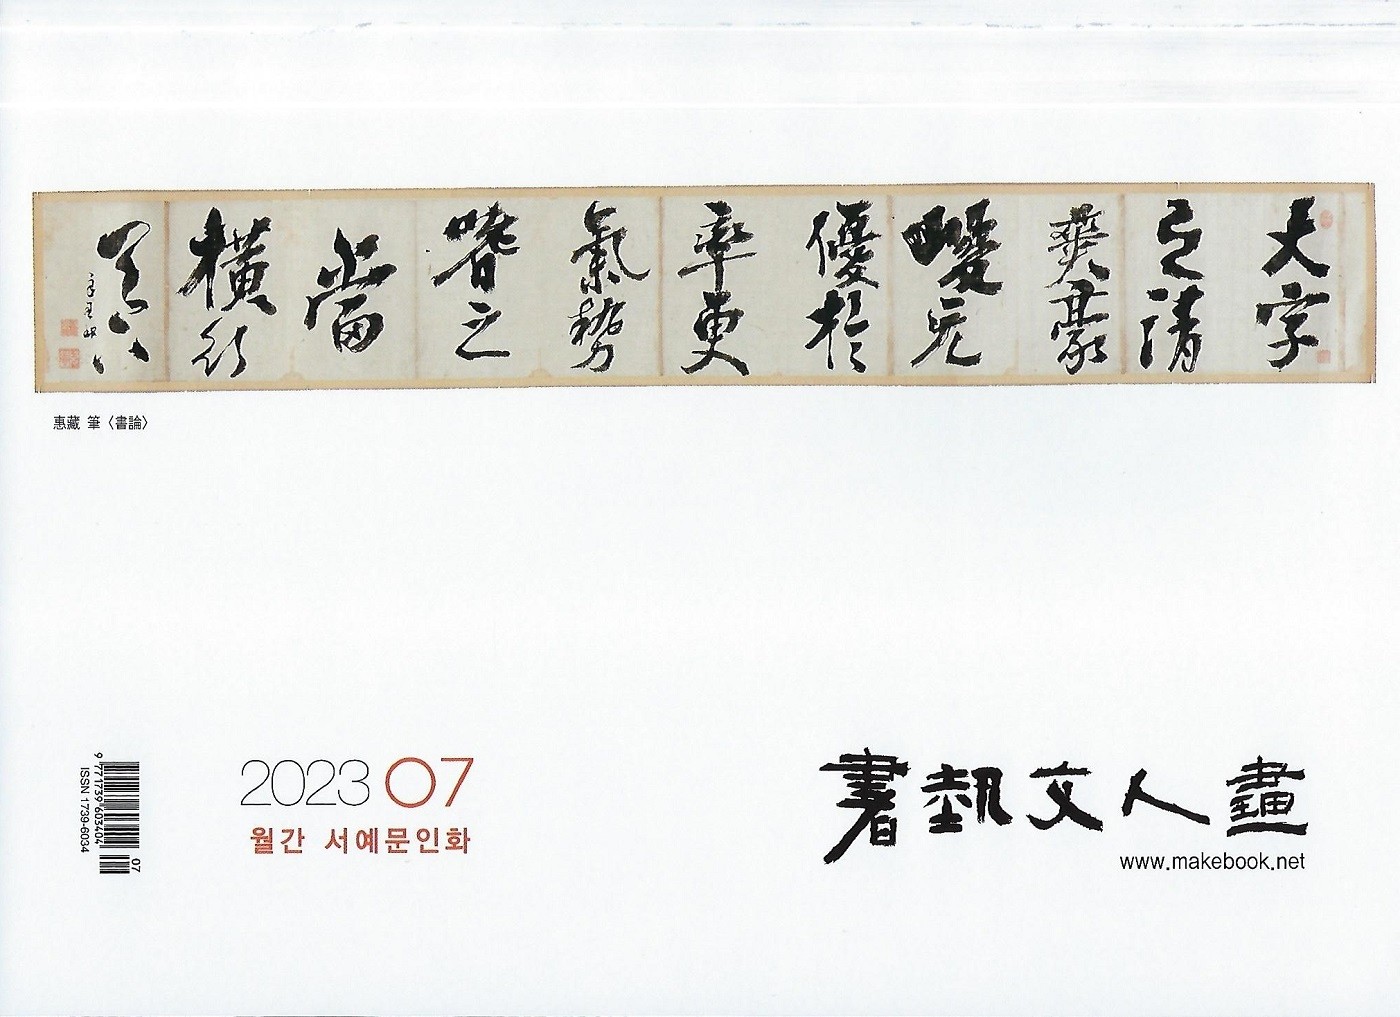 大字
之清
爽豪
優於
率更
氣勢
之
當
橫行
天下
惠藏 筆〈書論〉
2023 07
월간 서예문인화
書藝文人畫
www.makebook.net
9 771739 603404
07
ISSN 1739-6034